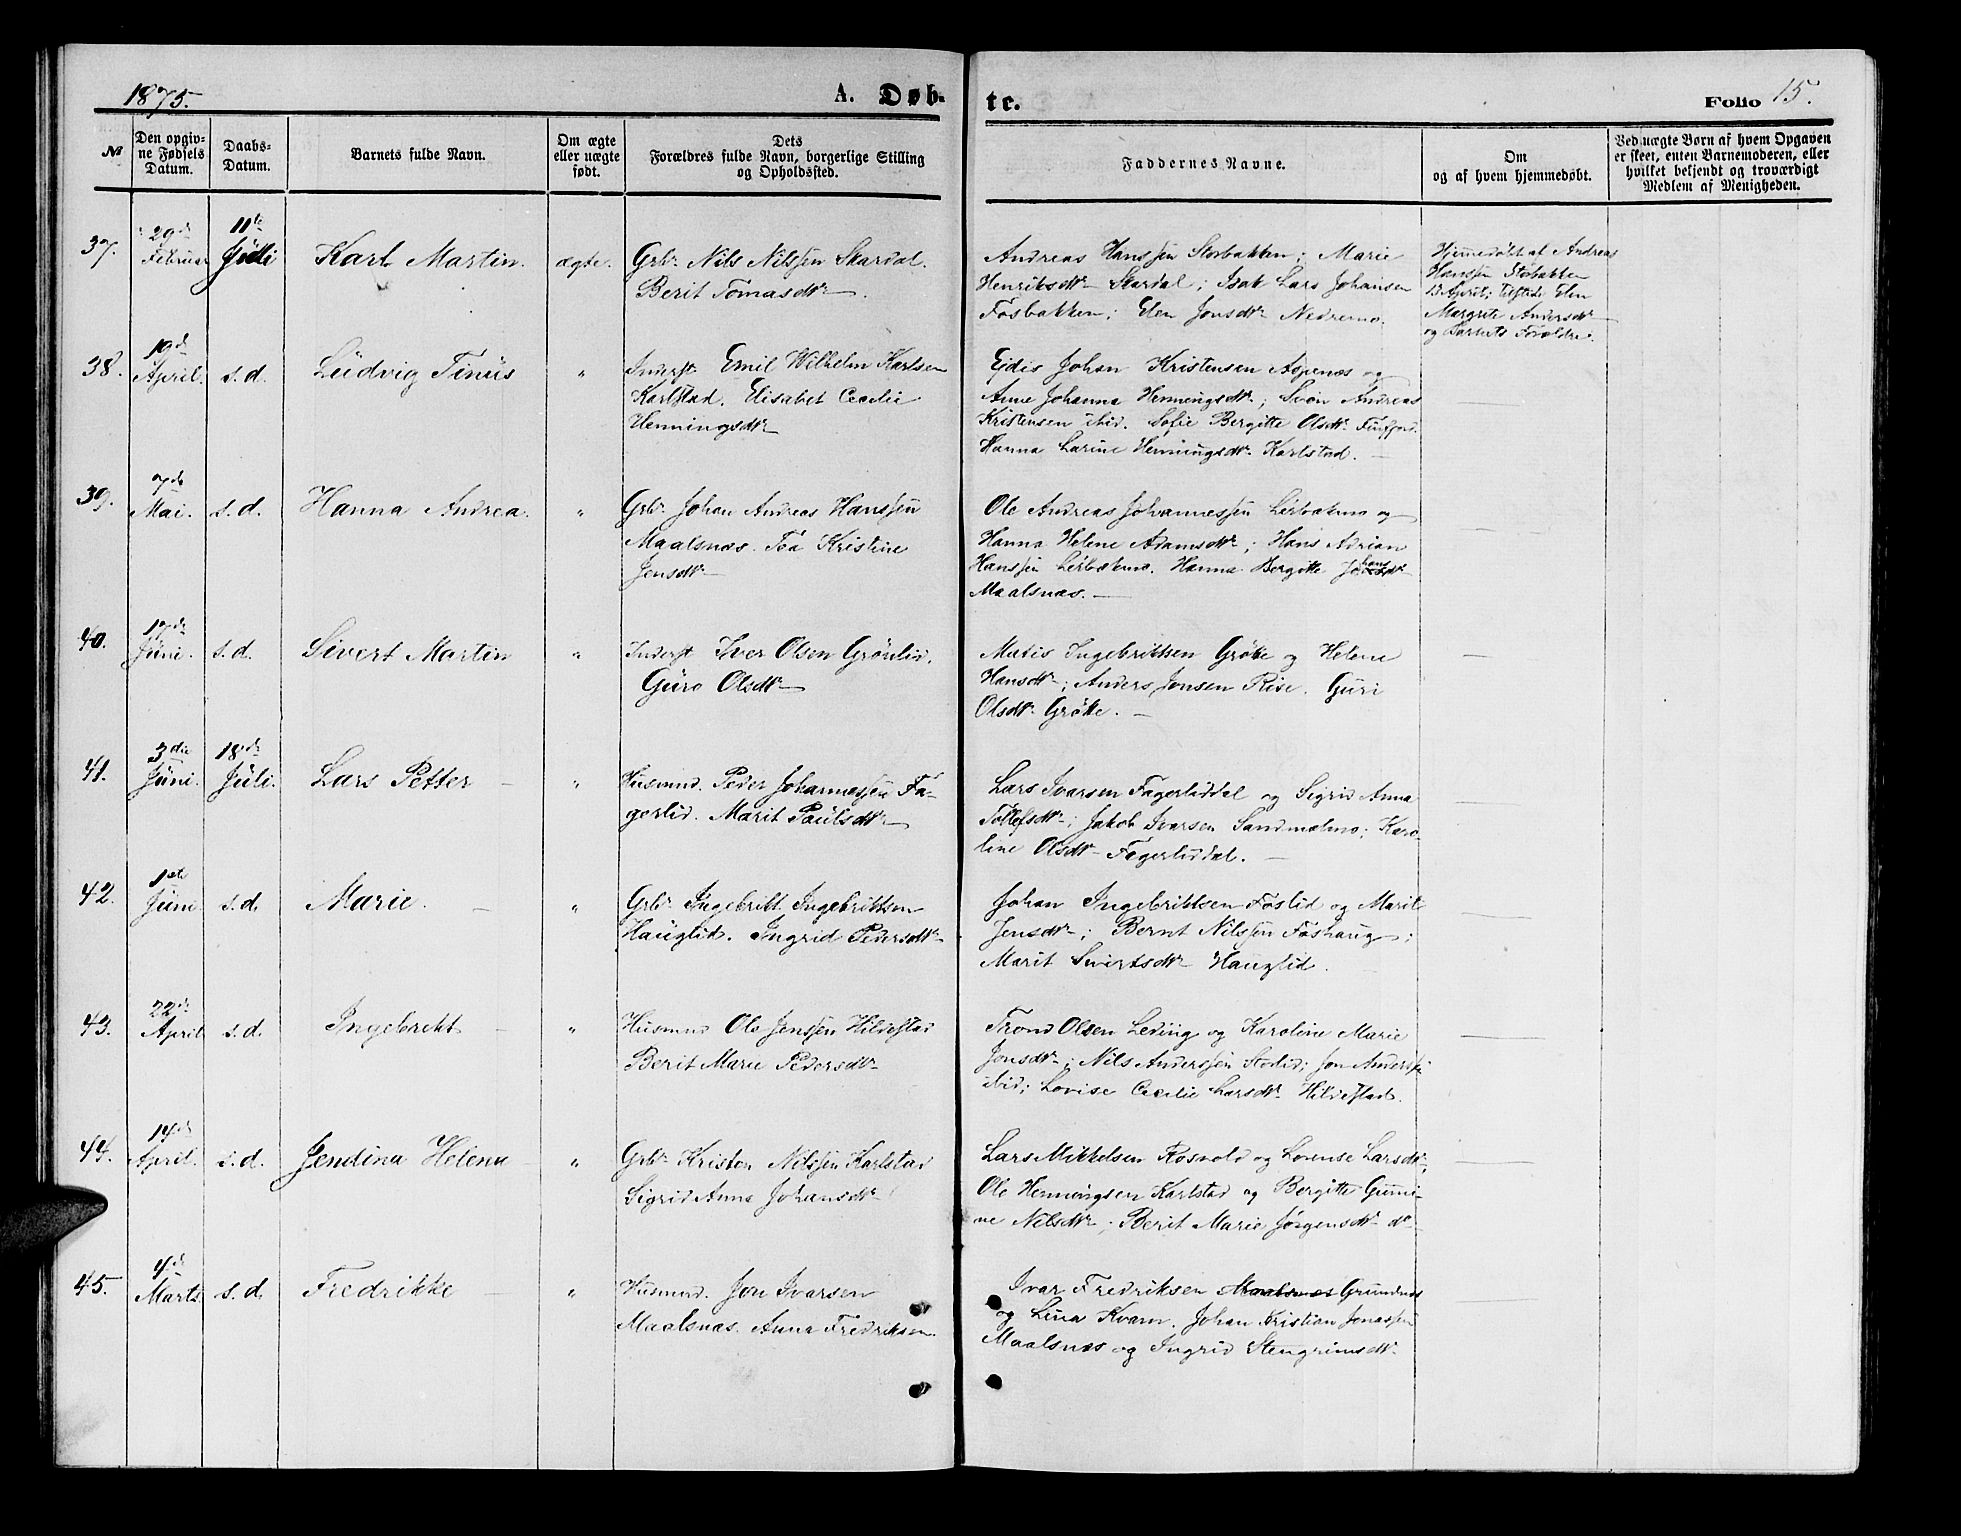 1875.
A. Døb-
te.
Folio 15.
№
Den opgiv-
ne Fødsels
Datum.
Daabs-
Datum.
Barnets fulde Navn.
Om ægte
eller uægte
født.
Dets
Forældres fulde Navn, borgerlige Stilling
og Opholdssted.
Faddernes Navne.
Om
og af hvem hjemmedøbt.
Ved uægte Børn af hvem Opgaven
er skeet, enten Barnemoderen, eller
hvilket bekjendt og troværdigt
Medlem af Menigheden.
37.
29de
Februar
11te
Juli
Karl Martin.
ægte.
Grbr Nils Nilssen Skardal.
Berit Tomasdtr.
Andreas Hanssen Storbakken; Marie
Henriksdtr Skardal; Isak Lars Johansen
Fosbakken; Elen Jonsdtr Nedremo.
Hjemmedøbt af Andreas
Hanssen Storbakken
13 April; tilstede Elen
Margrite Andersdtr
og Barnets Forældre.
38.
19de
April.
s.d.
Ludvig Tinus
"
Inderst Emil Wilhelm Karlsen
Karlstad. Elisabet Cecilie
Henningsdtr
Ejdis Johan Kristensen Aspenæs og
Anne Johanna Henningsdtr; Svon Andreas
Kristensen ibid. Sofie Bergitte Olsdtr Finfjord.
Hanna Larine Henningsdtr Karlstad. —
39.
7de
Mai.
s.d.
Hanna Andrea.
"
Grbr Johan Andreas Hanssen
Maalsnæs. Tea Kristine
Jensdtr
Ole Andreas Johannessen Lerbækmo og
Hanna Helene Adamsdtr; Hans Adrian
Hanssen Lerbækmo. Hanna Bergitte Johansdtr
Maalsnæs. —
40.
17de
Juni.
s.d.
Sivert Martin
"
Inderst Iver Olsen Grönlid.
Guro Olsdtr
Matis Ingebrittsen Grötte og Helene
Hansdtr; Anders Jonsen Rise. Guri
Olsdtr Grötte. —
41.
3die
Juni.
18de
Juli.
Lars Petter —
"
Husmnd. Peder Johannessen Fa-
gerlid. Marit Paulsdtr
Lars Ivarsen Fagerliddal og Sigrid Anna
Tollefsdtr; Jakob Ivarsen Sandmælmo; Karo-
line Olsdtr Fagerliddal. —
42.
1ste
Juni
s.d.
Marie. —
"
Grbr Ingebritt Ingebrittsen
Hauglid. Ingrid Pedersdtr
Johan Ingebrittsen Foslid og Marit
Jensdtr; Bernt Nilssen Foshaug;
Marit Sivertsdtr Hauglid.
43.
22de
April
s.d.
Ingebrekt —
"
Husmnd Ole Jenssen Hildestad
Berit Marie Pedersdtr
Trond Olsen Leding og Karoline Marie
Jonsdtr; Nils Anderssen Stolid; Jon Anderssen
ibid; Lovise Cecilie Larsdtr Hildestad.
44.
14de
April.
s.d.
Jendina Helena
"
Grbr Kristen Nilssen Karlstad
Sigrid Anna Johansdtr
Lars Mikkelsen Rosvold og Lorense Larsdtr;
Ole Henningsen Karlstad og Bergitte Gumi-
ne Nilsdtr; Berit Marie Jørgensdtr do
45.
4de
Marts.
s.d.
Fredrikke —
"
Husmnd. Jon Ivarsen
Maalsnæs. Anna Fredriksen.
Ivar Fredriksen Maalsnæs Grundnæs
og Lina Kvam. Johan Kristian Jonassen
Maalsnæs og Ingrid Stengrimsdtr